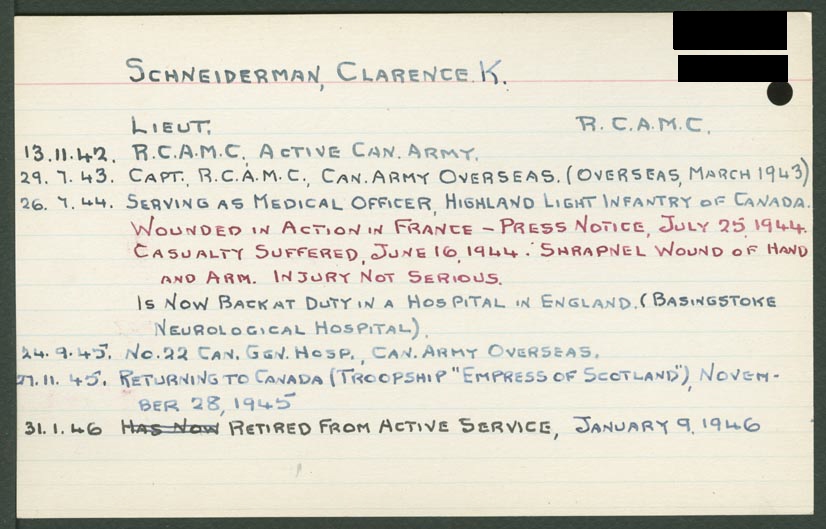 SCHNEIDERMAN, CLARENCE K.
LIEUT. R.C.A.M.C.
13.11.42. R.C.A.M.C. ACTIVE CAN. ARMY.
29.7.43. CAPT., R.C.A.M.C., CAN. ARMY OVERSEAS. (OVERSEAS, MARCH 1943)
26.7.44. SERVING AS MEDICAL OFFICER, HIGHLAND LIGHT INFANTRY OF CANADA.
WOUNDED IN ACTION IN FRANCE – PRESS NOTICE, JULY 25, 1944.
CASUALTY SUFFERED, JUNE 16, 1944. SHRAPNEL WOUND OF HAND
AND ARM. INJURY NOT SERIOUS.
IS NOW BACK AT DUTY IN A HOSPITAL IN ENGLAND. (BASINGSTOKE
NEUROLOGICAL HOSPITAL).
24.9.45. NO. 22 CAN. GEN. HOSP., CAN. ARMY OVERSEAS.
27.11.45. RETURNING TO CANADA (TROOPSHIP "EMPRESS OF SCOTLAND"), NOVEM-
BER 28, 1945
31.1.46 HAS NOW RETIRED FROM ACTIVE SERVICE, JANUARY 9, 1946